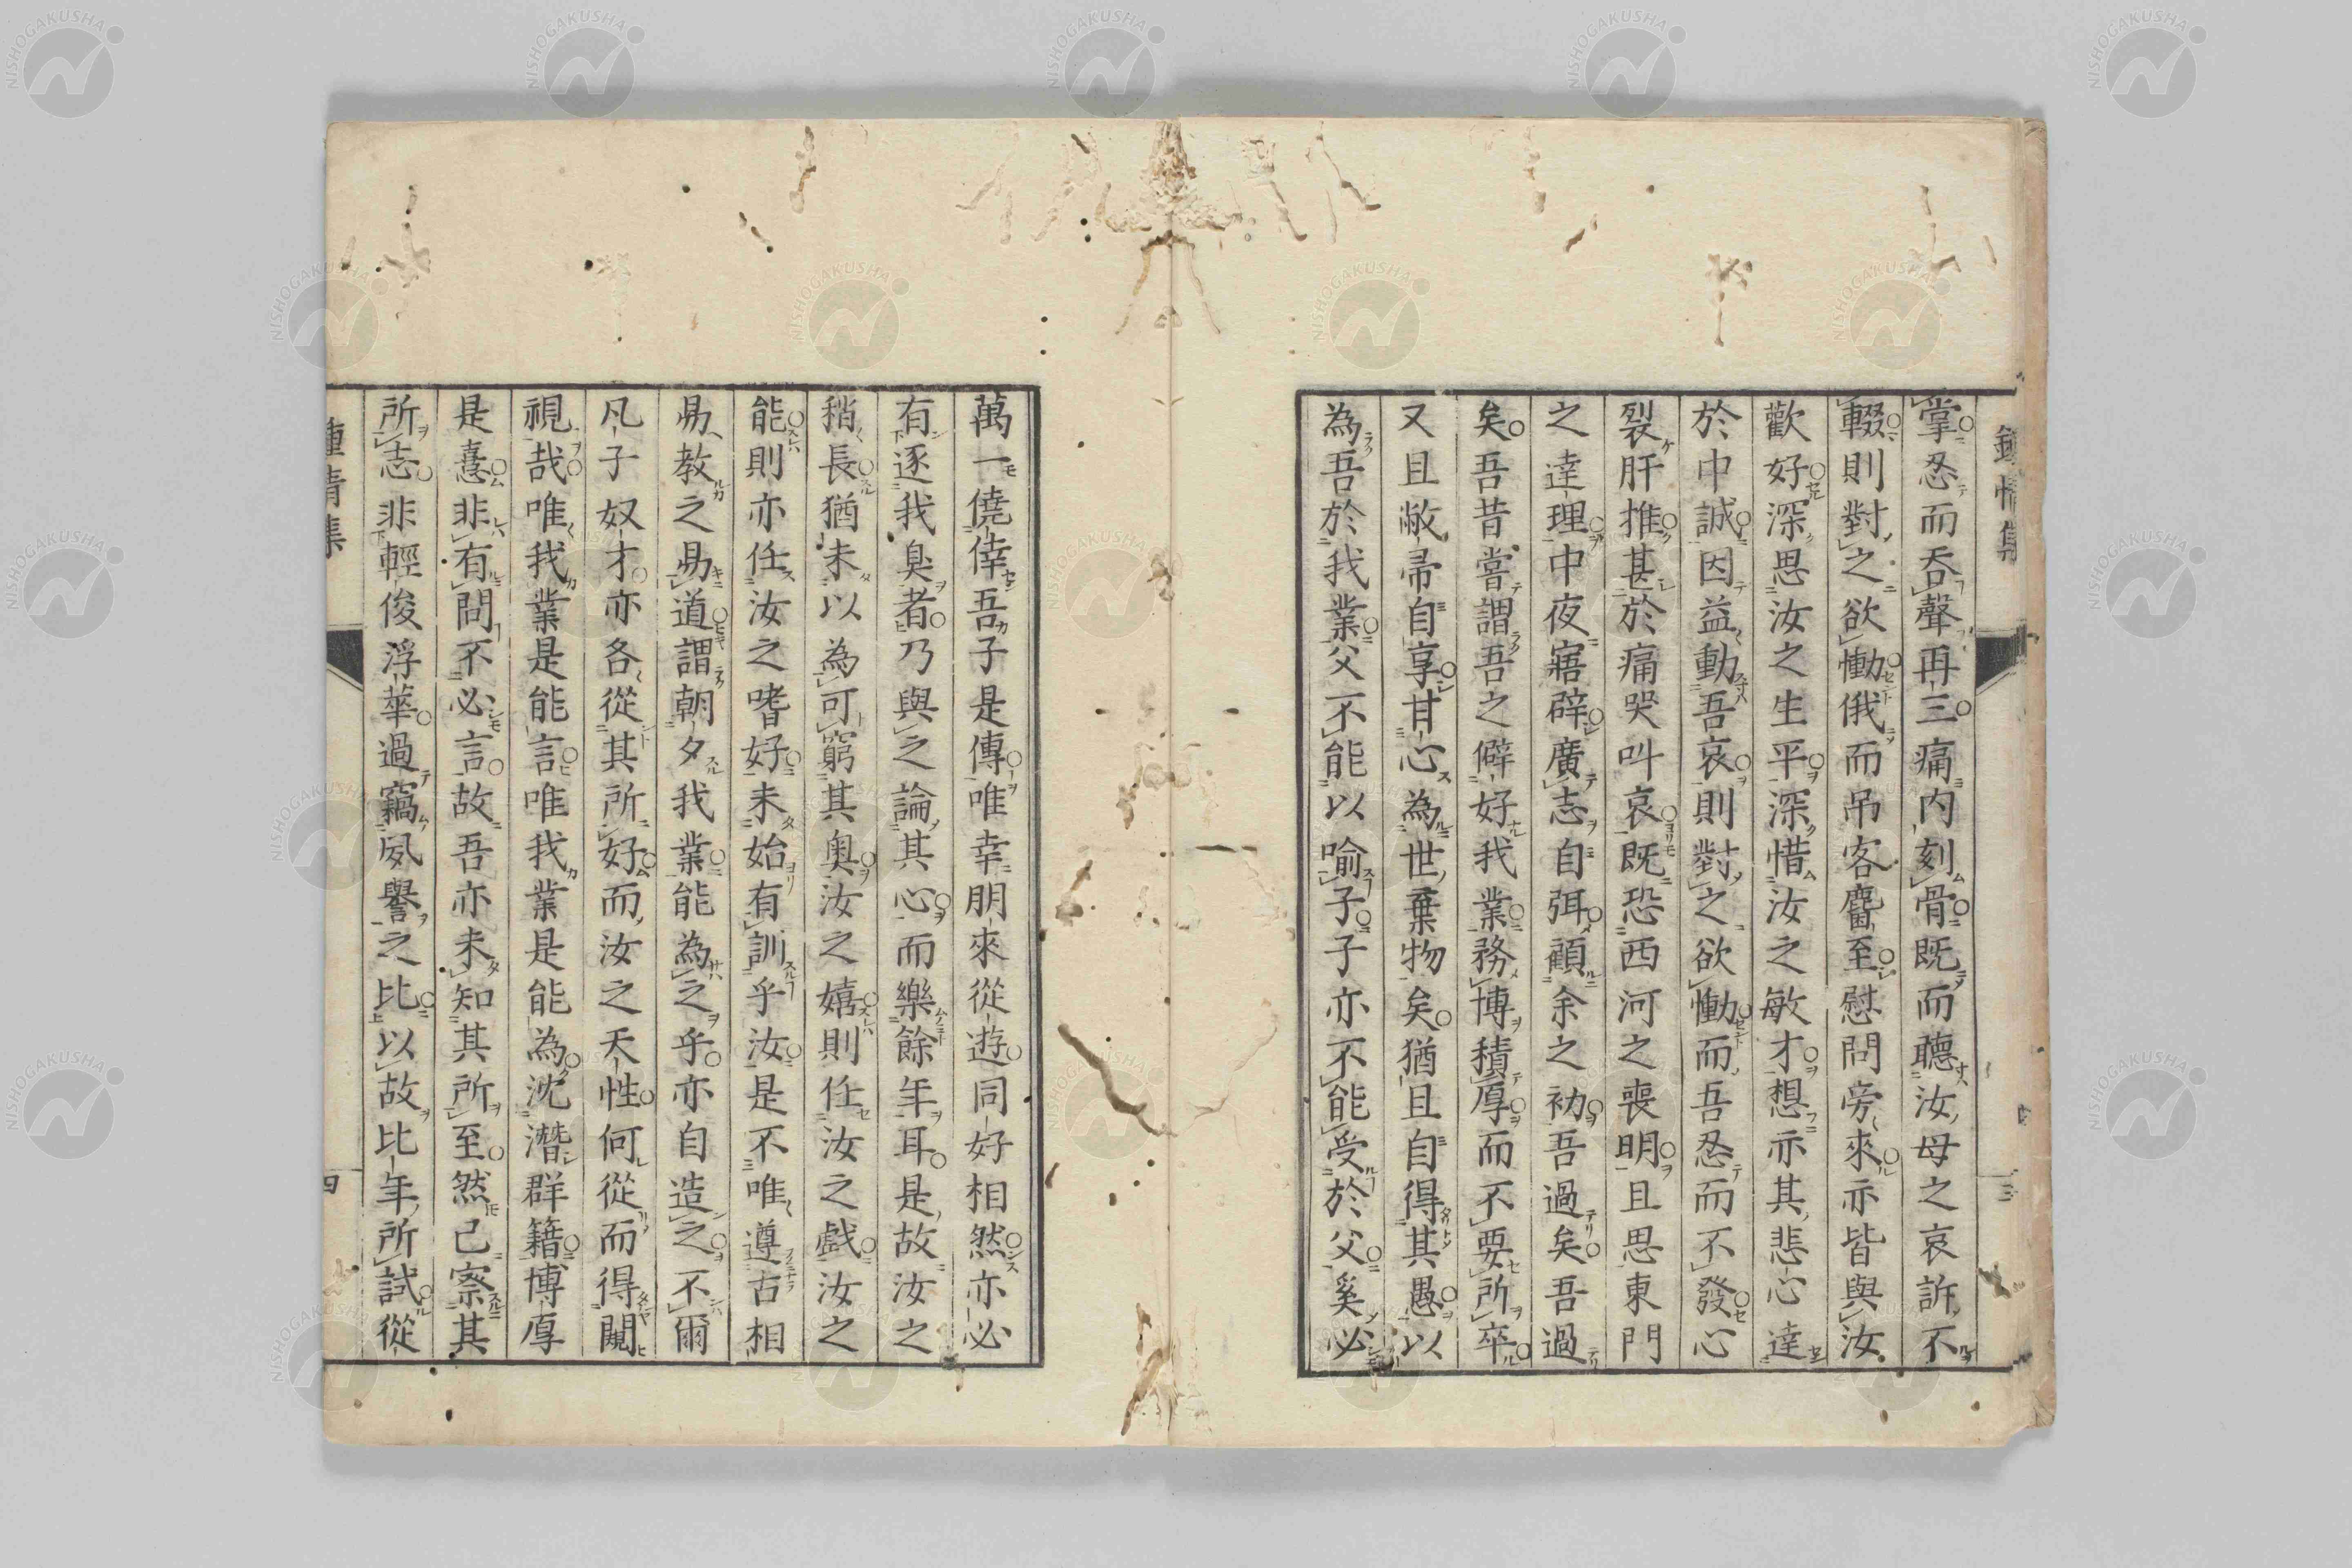 掌忍而吞聲再三痛内刻骨既而聽汝母之哀訴不
輟則對之欲慟俄而吊客麕至慰問旁來亦皆與汝
歡好深思汝之生平深惜汝之敏才想亦其悲心達
於中誠因益動吾哀則對之欲慟而吾忍而不發心
裂肝摧甚於痛哭叫哀既恐西河之喪明且思東門
之達理中夜寤辟廣志自弭顧余之初吾過矣吾過
矣吾昔嘗謂吾之僻好我業務博積厚而不要所卒
又且敝帚自享甘心為世棄物矣猶且自得其愚以
為吾於我業父不能以喻子子亦不能受於父奚必
萬一僥倖吾子是傳唯幸朋來從遊同好相然亦必
有逐我臭者乃與之論其心而樂餘年耳是故汝之
稍長猶未以為可窮其奥汝之嬉則任汝之戲汝之
能則亦任汝之嗜好未始有訓乎汝是不唯遵古相
易教之易道謂朝夕我業能為之乎亦自造之不爾
凡子奴才亦各從其所好而汝之天性何從而得闚
視哉唯我業是能言唯我業是能為沈潛群籍博厚
是憙非有問不必言故吾亦未知其所至然己察其
所志非輕俊浮華過竊夙譽之比以故比年所試從
鍾情集
三
鍾情集
四
NISHOGAKUSHA